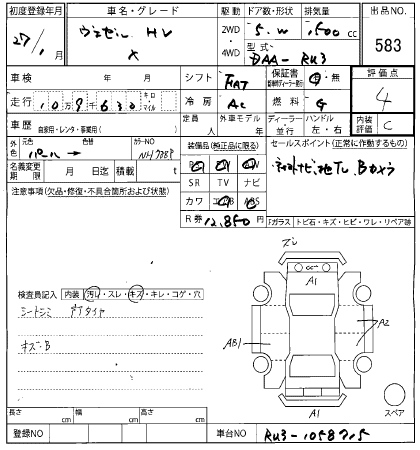 初度登録年月 車名・グレード 駆動 ドア数・形状 排気量 出品NO.
27/1月 ヴェゼル HV 2WD・4WD 5.W 1,500cc 583
X 型式 DAA-RU3
車検 年 月 シフト FAT 保証書 有・無 評価点
走行 10万9千630 キロ・マイル 冷房 AC 燃料 G 4
車歴 自家用・レンタ・事業用( ) 定員 人 外車モデル 年 ディーラー・並行 ハンドル 左・右 内装評価 C
外色 元色 パール → 色替 カラーNO NH788P 装備品(純正品に限る) セールスポイント(正常に作動するもの)
名義変更期限 月 日 積載 t SR TV ナビ ナビ、地TV、Bカメラ
注意事項(欠品・修復・不具合箇所および状態) カワ エアB ABS
R券 12,850円 Fガラス トビ石・キズ・ヒビ・ワレ・リペア跡
検査員記入 内装 汚レ・スレ・キズ・キレ・コゲ・穴
シートシミ
キズ・B
A1
AB1
A2
A1
スペア
長さ cm 幅 cm 高さ cm
登録NO 車台NO RU3-1058715